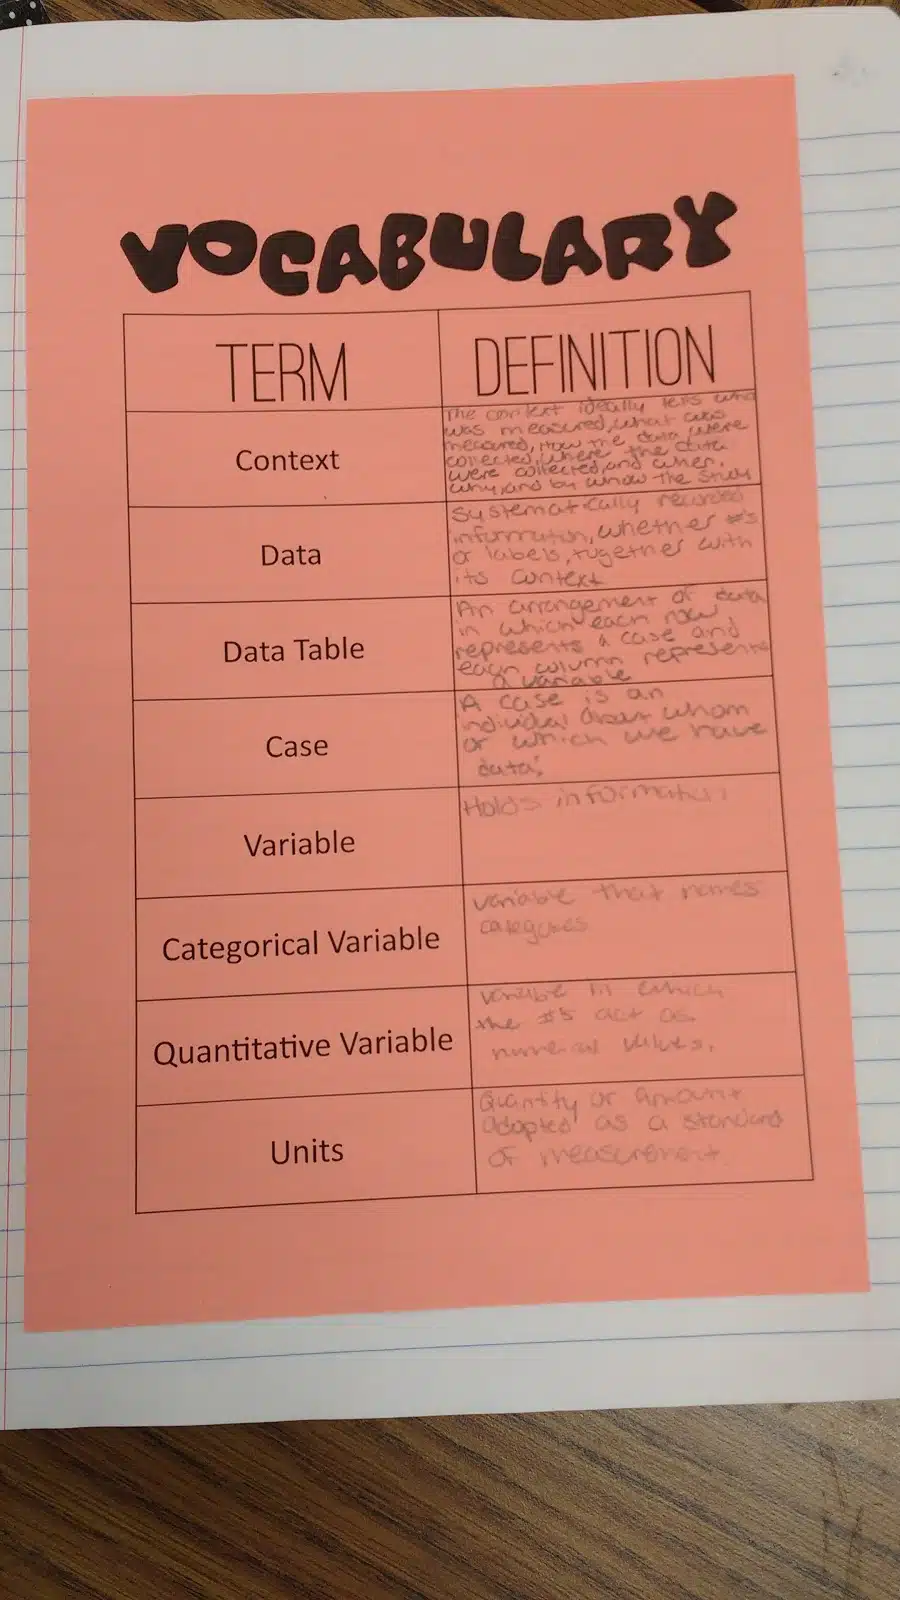 VOCABULARY
TERM
DEFINITION
Context
The context ideally tells who
was measured, what was
measured, How the data were
collected, where the data
were collected, and when,
why, and by whom the study
Data
Systematically recorded
information, whether #'s
or labels, together with
its context
Data Table
An arrangement of data
in which each row
represents a case and
each column represents
a variable
Case
A case is an
individual about whom
or which we have
data.
Variable
Holds information
Categorical Variable
variable that names
categories
Quantitative Variable
variable in which
the #'s act as
values.
Units
Quantity or amount
adopted as a standard
of measurement.